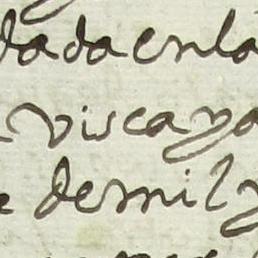 dada en la
viscaya
de mil y